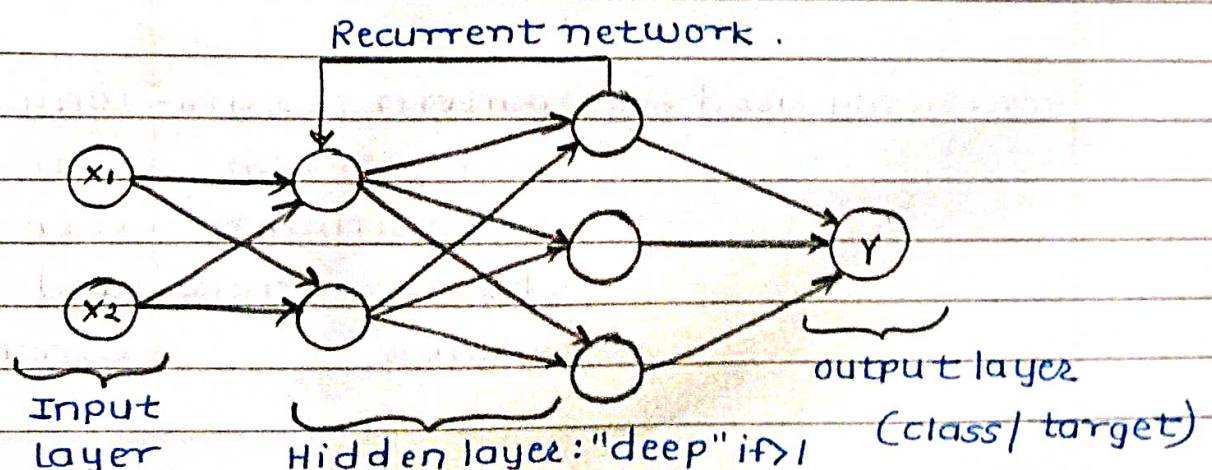 Recurrent network.
X1
X2
Y
Input
Layer
Hidden layer: "deep" if >1
output layer
(class/ target)